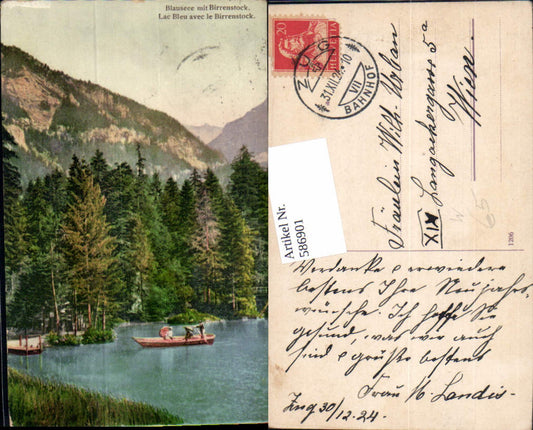 Blausee mit Birrenstock.
Lac Bleu avec le Birrenstock.
20
HELVETIA
ZUG
31.XII.24.-10
VII
BAHNHOF
Fräulein Wilh. Urban
XIX Langackergasse 5a
Wien.
W
65
1206
Artikel Nr.
586901
Verdanke & erwiedere
bestens Ihre Neujahrs-
wünsche. Ich hoffe Sie
gesund, was wir auch
sind & grüße bestens
Frau M. Landis-
Zug 30/12.24.